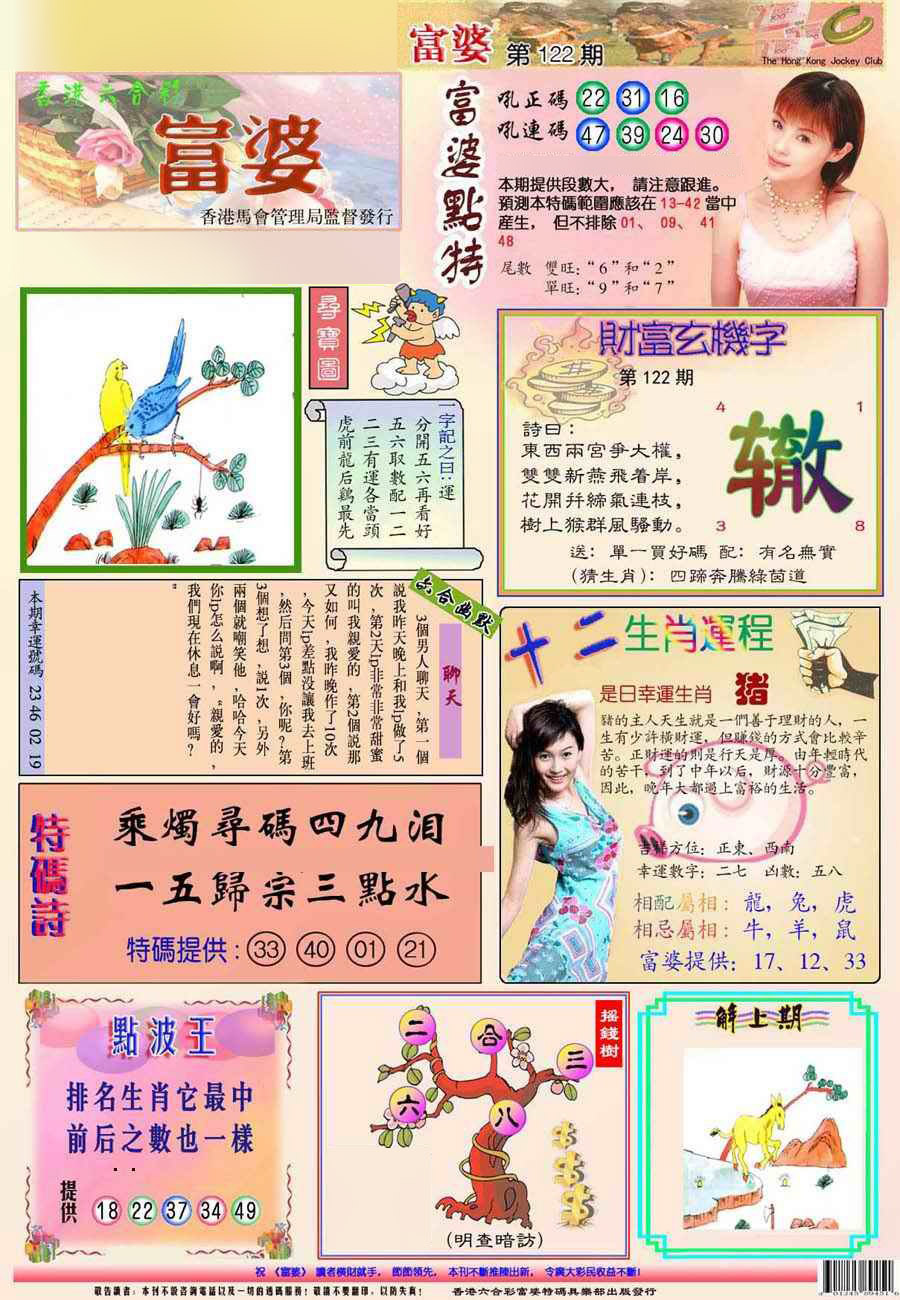 富婆 第 122 期
The Hong Kong Jockey Club
香港六合彩
富婆
香港馬會管理局監督發行
富婆點特
吼正碼 22 31 16
吼連碼 47 39 24 30
本期提供段數大, 請注意跟進。
預測本特碼範圍應該在 13-42 當中
産生, 但不排除 01、 09、 41
48
尾數 雙旺: “6” 和 “2”
單旺: “9” 和 “7”
尋寶圖
一字記之曰:: 運
分開五六再看好
五六取數配一二
二三有運各當頭
虎前龍后鷄最先
財富玄機字
第 122 期
詩曰:
東西兩宮爭大權,
雙雙新燕飛着岸,
花開幷締氣連枝,
樹上猴群風騷動。
4 1
辙
3 8
送: 單一買好碼 配: 有名無實
(猜生肖): 四蹄奔騰綠茵道
六合幽默
聊天
3個男人聊天,第一個
説我昨天晚上和我lp做了5
次,第2天lp非常非常甜蜜
的叫我親愛的,第2個説那
又如何,我昨晚作了10次
,今天lp差點没讓我去上班
,然后問第3個,你呢?第
3個想了想,説1次,另外
兩個就嘲笑他,哈哈今天
你lp怎么説啊,“親愛的,
我們現在休息一會好嗎?
”
本期幸運號碼 23 46 02 19
十二生肖運程
是日幸運生肖 豬
豬的主人天生就是一們善于理財的人,一
生有少許横財運,但賺錢的方式會比較辛
苦。正財運的則是行天是厚。由年輕時代
的苦干,到了中年以后,財源十分豐富,
因此,晚年大都過上富裕的生活。
吉祥方位: 正東、西南
幸運數字: 二七 凶數: 五八
相配屬相: 龍, 兔, 虎
相忌屬相: 牛, 羊, 鼠
富婆提供: 17、12、33
特碼詩
乘燭尋碼四九泪
一五歸宗三點水
特碼提供: 33 40 01 21
點波王
排名生肖它最中
前后之數也一樣
提供 18 22 37 34 49
搖錢樹
二 合 三
六 八
(明查暗訪)
解上期
祝 《富婆》 讀者横財就手, 節節領先, 本刊不斷推陳出新, 令廣大彩民收益不斷!
敬告讀者: 本刊不設咨詢電話以及一切的透碼服務! 敬請不要翻印, 以防失真! 香港六合彩富婆特碼具樂部出版發行